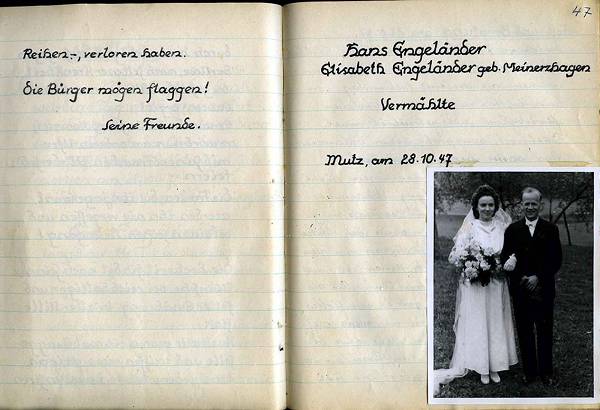 Reihen-, verloren haben.
Die Bürger mögen flaggen!
Seine Freunde.
47
Hans Engeländer
Elisabeth Engeländer geb. Meinerzhagen
Vermählte
Mutz, am 28.10.47